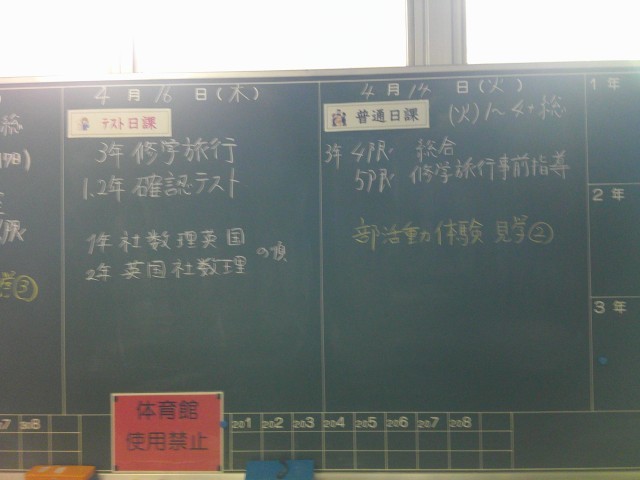 4月14日(火)
普通日課 (火)1〜4+総
3年 4限 総合
5限 修学旅行事前指導
部活動体験見学②
4月16日(木)
テスト日課
3年 修学旅行
1.2年 確認テスト
1年 社数理英国
2年 英国社数理 の順
総
③
1年
2年
3年
体育館
使用禁止
207 208
201 202 203 204 205 206 207 208